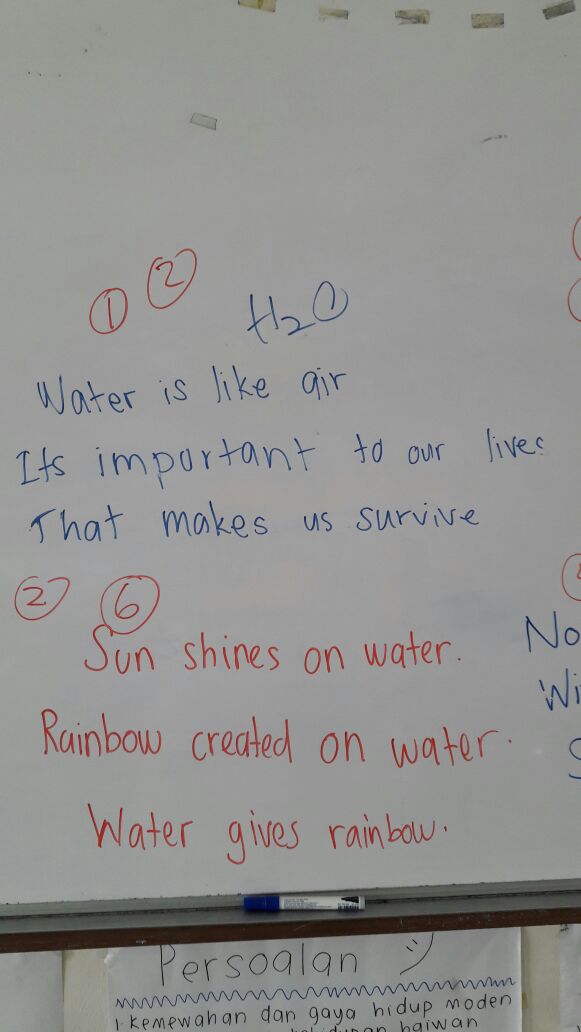 ① ②
H₂O
Water is like air
Its important to our lives
That makes us survive
② ⑥
Sun shines on water.
Rainbow created on water.
Water gives rainbow.
No
Wi
S
Persoalan
1. Kemewahan dan gaya hidup moden
haiwan